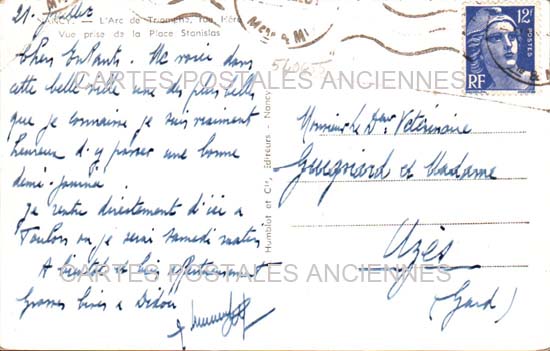 21 Juillet
NANCY. - L'Arc de Triomphe, rue Héré
Vue prise de la Place Stanislas
Chers Enfants. Me voici dans
cette belle ville une des plus belles
que je connaisse je suis vraiment
heureux d'y passer une bonne
demi-journée.
Je rentre directement d'ici à
Toulon où je serai samedi matin
A bientôt et bien affectueusement
Grosses bises à Didou
Humblot et Cie, Editeurs - Nancy
12F
POSTES
RF
Monsieur le Dr Vétérinaire
et Madame
Uzès
(Gard)
CARTES POSTALES ANCIENNES
CARTES POSTALES ANCIENNES